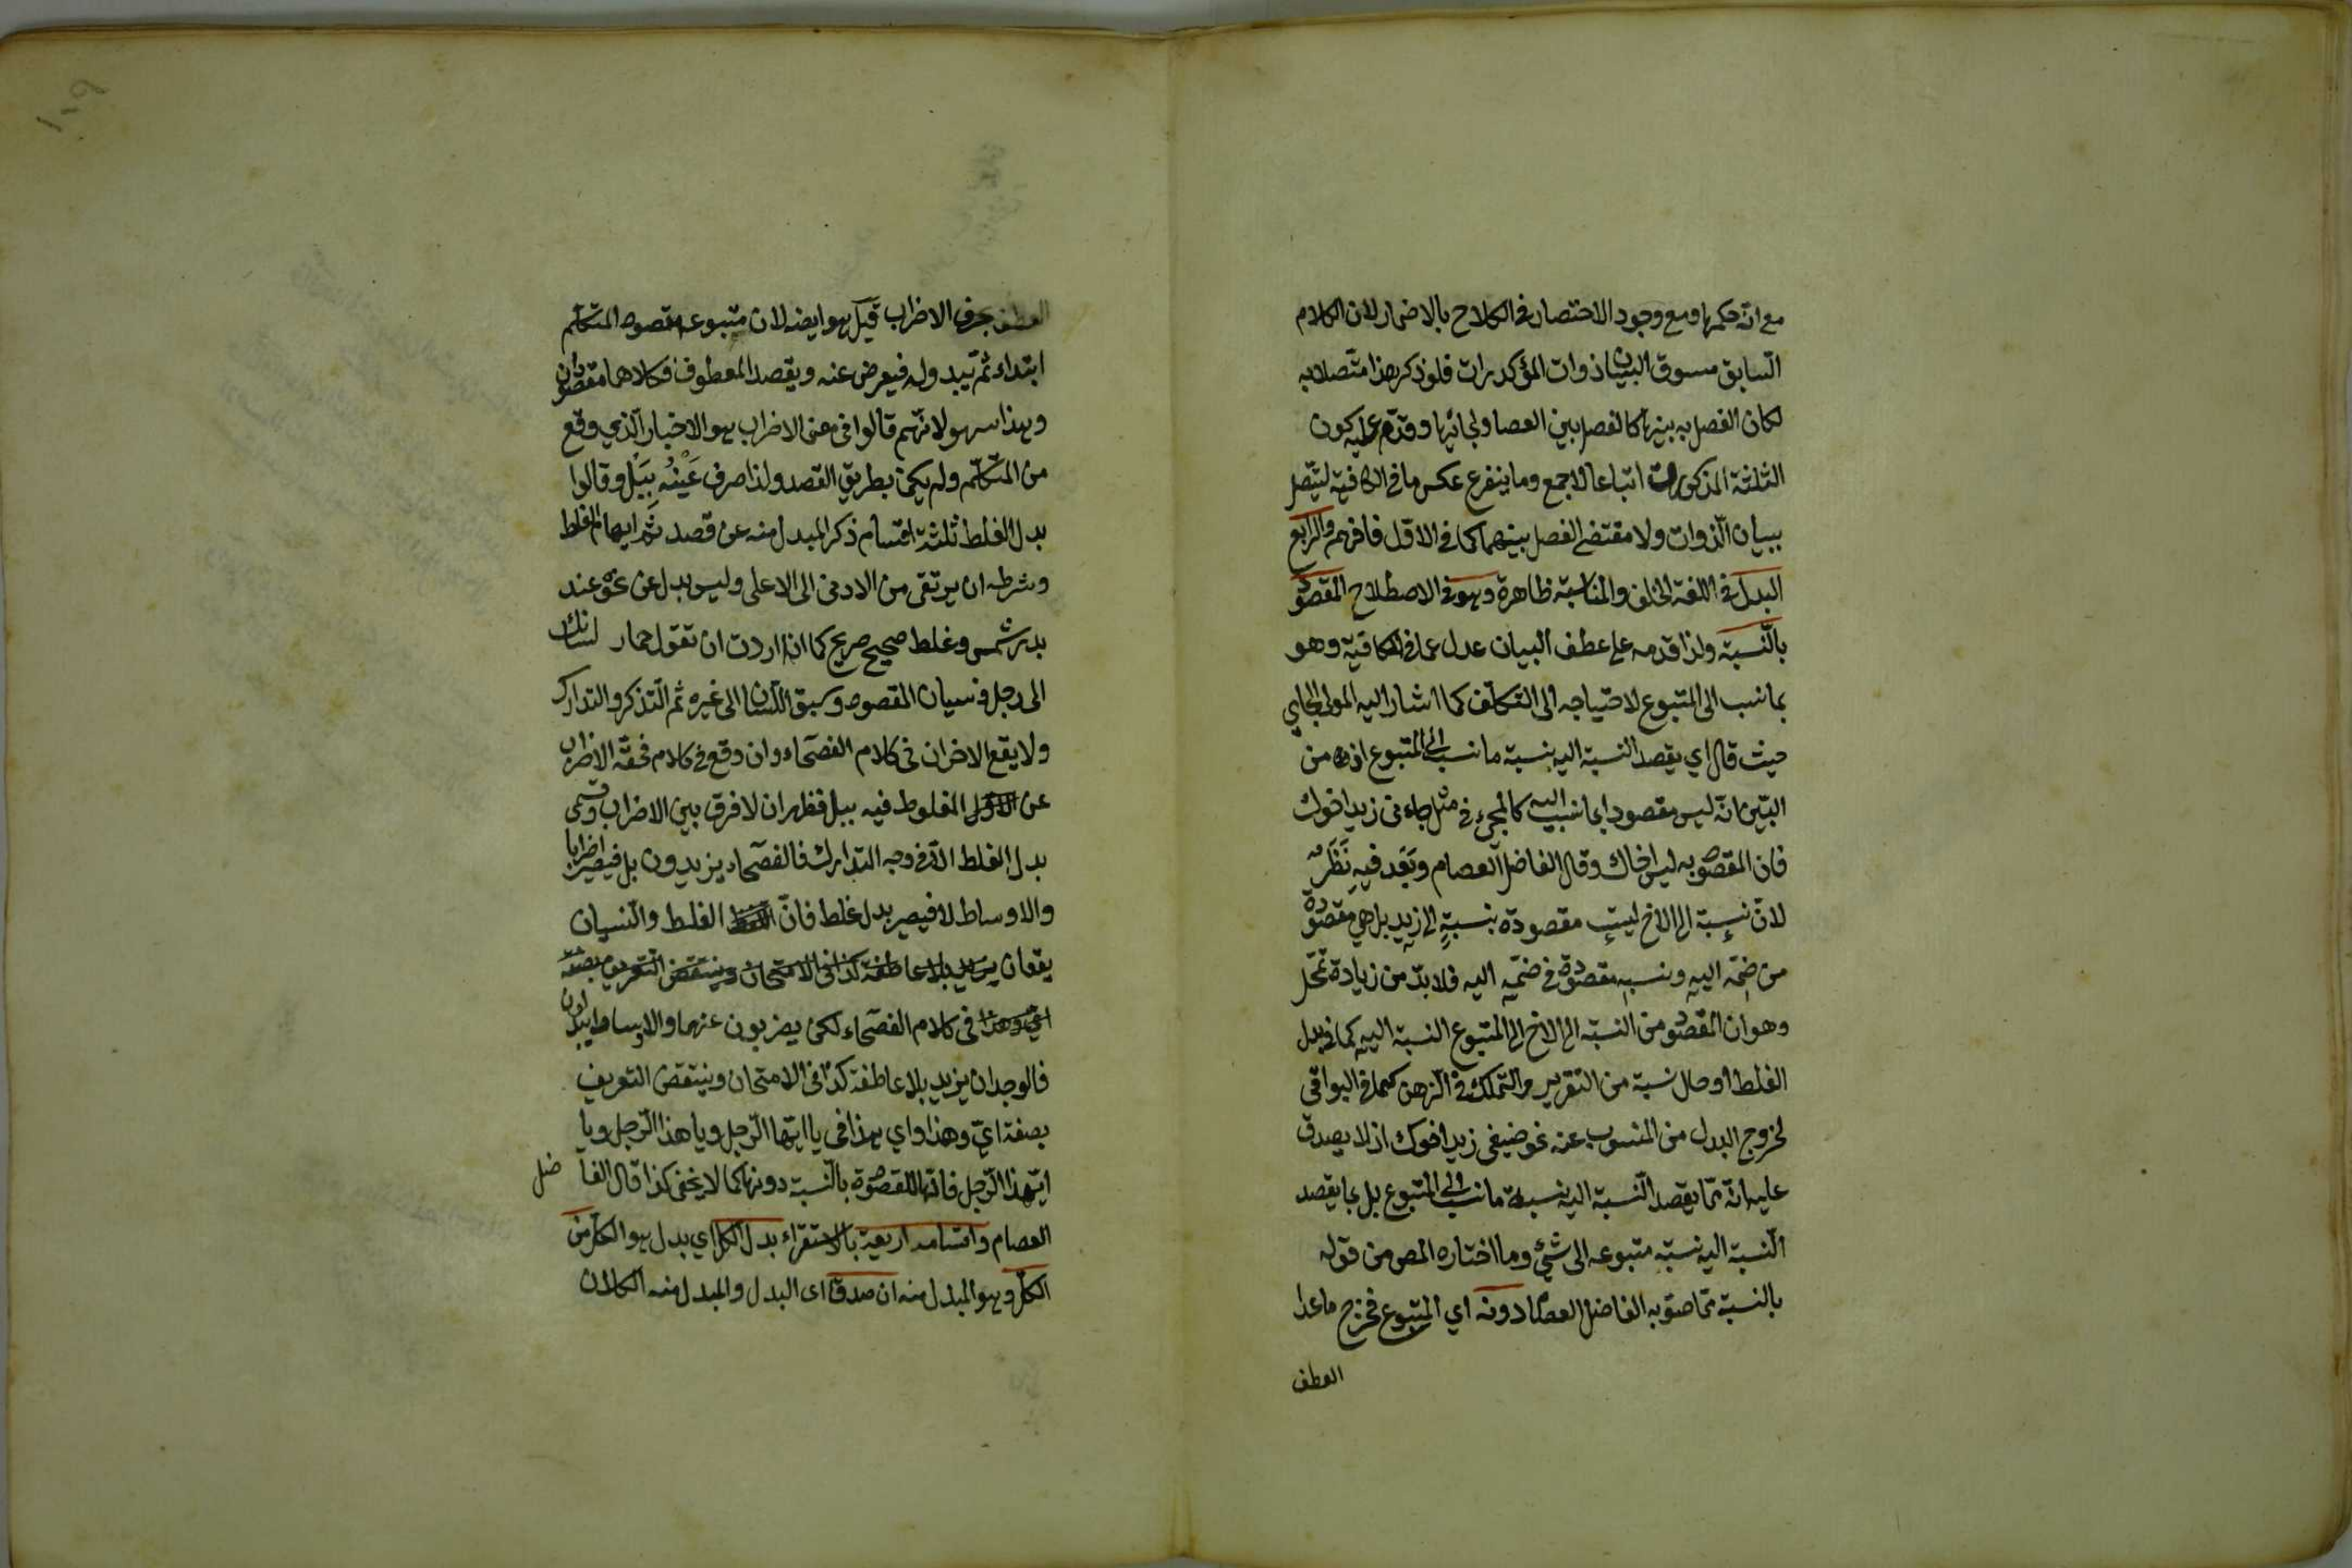 مع انه حكمها ومع وجود الاختصار في الكلام بالاضمار لان الكلام
السابق مسوق لبيان ذوات المؤكدات فلو ذكر هذا متصلا به
لكان الفصل به بينها كالفصل بين العصا ولحائها وقدم عليه كون
الثلثة المذكورات اتباعا لاجمع وما يتفرع عكس ما في الكافية ليتصل
ببيان الذوات ولا مقتضى الفصل بينهما كما في الاول فافهم والرابع
البدل في اللغة الخلف والمناسبة ظاهرة وهو في الاصطلاح المقصود
بالنسبة ولذا قدمه على عطف البيان عدل عما في الكافية وهو
بما نسب الى المتبوع لاحتياجه الى التكلف كما اشار اليه المولى الجامي
حيث قال اي يقصد النسبة اليه بنسبة ما نسب الى المتبوع اذ من
البين انه ليس مقصودا بما نسب اليه كالمجيء في مثل جاءني زيد اخوك
فان المقصود به ليس اخاك وقال الفاضل العصام وبعد فيه نظر
لان نسبة الى الاخ ليست مقصودة بنسبة الى زيد بل هي مقصودة
من ضمه اليه ونسبه مقصودة في ضميه اليه فلا بد من زيادة تمحل
وهو ان المقصود من النسبة الى الاخ الى المتبوع النسبة اليه كما في بدل
الغلط او حال نسبة من التقرير والتملك في الذهن كما في البواقي
لخروج البدل من المنسوب عنه نحو ضيفي زيد اخوك اذ لا يصدق
عليه انه مما يقصد النسبة اليه بنسبة ما نسب الى المتبوع بل بما يقصد
النسبة اليه نسبة متبوعه الى شيء وما اختاره المص من قوله
بالنسبة مما صوبه الفاضل العصام دونه اي المتبوع فخرج ما عدا
العطف
العطف بحرف الاضراب قيل هو ايضا لان متبوعه مقصود المتكلم
ابتداء ثم يبدو له فيعرض عنه ويقصد المعطوف فكلاهما مقصودان
وهذا سهو لانهم قالوا في معنى الاضراب هو الاخبار الذي وقع
من المتكلم ولم يكن بطريق القصد ولذا صرف عنه ببل وقالوا
بدل الغلط ثلثة اقسام ذكر المبدل منه عن قصد ثم ايهام الغلط
وشرطه ان يرتقى من الادنى الى الاعلى وليس بدل عن نحو عند
بدر شمس وغلط صحيح صريح كما اذا اردت ان تقول حمار لسانك
الى رجل ونسيان المقصود وسبق اللسان الى غيره ثم التذكر والتدارك
ولا يقع الاخران في كلام الفصحاء وان وقع في كلام فحقه الاضراب
عن المغلوط فيه ببل فظهر ان لا فرق بين الاضراب وقسمى
بدل الغلط الا في وجه التدارك فالفصحاء يزيدون بل فيصير اضرابا
والاوساط لا فيصير بدل غلط فان الغلط والنسيان
يقعان يزيد بلا عاطفة كذا في الامتحان وينتقض التعريف بصفة
اي وهذا في كلام الفصحاء لكن يضربون عنهما والاوساط يبدلون
فالوجدان يزيد بلا عاطفة كذا في الامتحان وينتقض التعريف
بصفة اي وهذا واي هذا في يا ايها الرجل ويا هذا الرجل ويا
ايهذا الرجل فانها المقصودة بالنسبة دونها كما لا يخفى كذا قال الفاضل
العصام واقسامه اربعة بالاستقراء بدل الكل اي بدل هو الكل من
الكل وهو المبدل منه ان صدقا اى البدل والمبدل منه الكلان